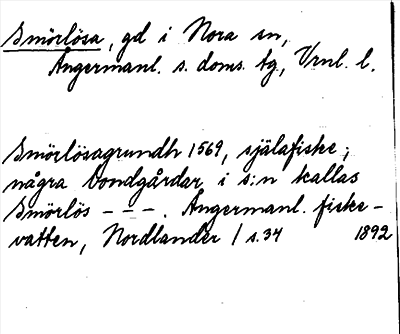 Smörlösa, gd i Nora sn,
Ångermanl. s. doms. tg, Vrnl. l.
Smörlösagrundh 1569, själafiske;
några bondgårdar i s:n kallas
Smörlös - - -. Ångermanl. fiske-
vatten, Nordlander / s. 34 1892